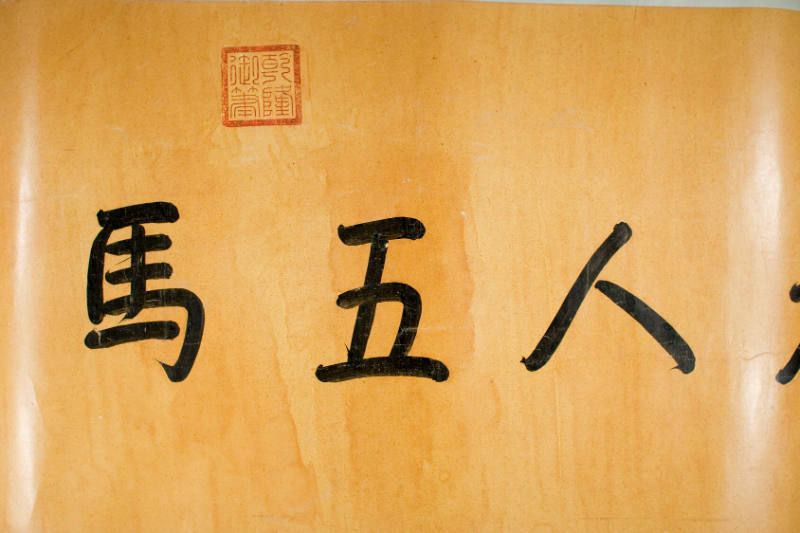 人五馬
乾隆御筆